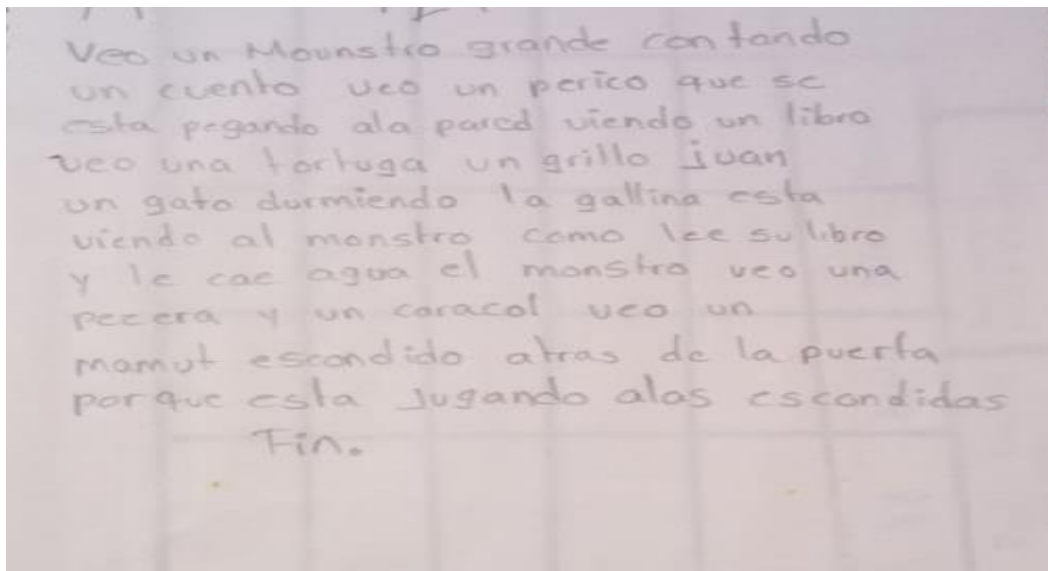 Veo un Mounstro grande contando
un cuento veo un perico que se
esta pegando ala pared viendo un libro
veo una tortuga un grillo juan
un gato durmiendo la gallina esta
viendo al monstro como lee su libro
y le cae agua el monstro veo una
pecera y un caracol veo un
mamut escondido atras de la puerta
porque esta Jugando alas escondidas
Fin.